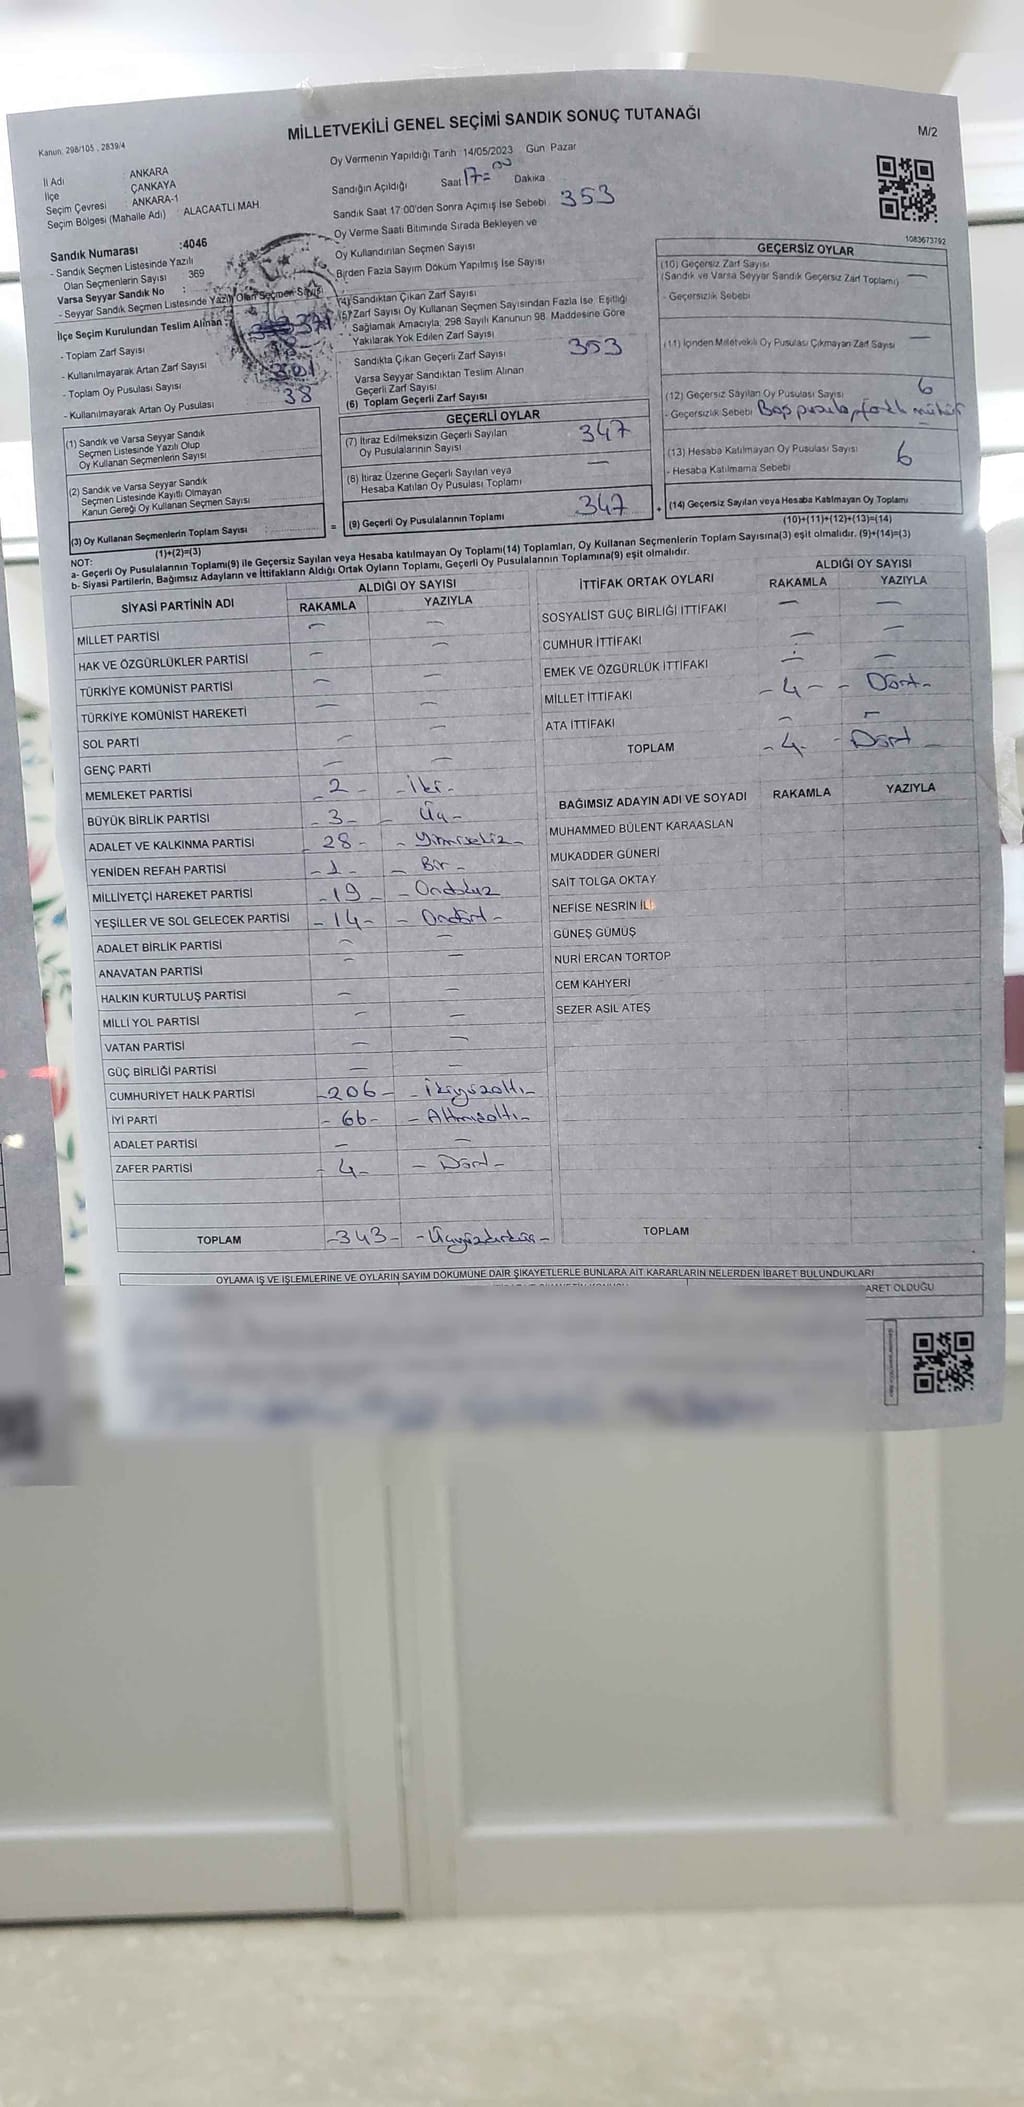 MİLLETVEKİLİ GENEL SEÇİMİ SANDIK SONUÇ TUTANAĞI
M/2
Kanun. 298/105 , 2839/4
İl Adı ANKARA
İlçe ÇANKAYA
Seçim Çevresi : ANKARA-1
Seçim Bölgesi (Mahalle Adı) : ALACAATLI MAH.
Oy Vermenin Yapıldığı Tarih 14/05/2023 Gün Pazar
Sandığın Açıldığı Saat 17=00 Dakika
Sandık Saat 17:00'den Sonra Açımış İse Sebebi 353
Oy Verme Saati Bitiminde Sırada Bekleyen ve
Oy Kullandırılan Seçmen Sayısı
Birden Fazla Sayım Döküm Yapılmış İse Sayısı
1083673792
Sandık Numarası :4046
- Sandık Seçmen Listesinde Yazılı
Olan Seçmenlerin Sayısı 369
Varsa Seyyar Sandık No :
- Seyyar Sandık Seçmen Listesinde Yazılı Olan Seçmen Sayısı
İlçe Seçim Kurulundan Teslim Alınan :
- Toplam Zarf Sayısı
- Kullanılmayarak Artan Zarf Sayısı
- Toplam Oy Pusulası Sayısı
- Kullanılmayarak Artan Oy Pusulası 38
(1) Sandık ve Varsa Seyyar Sandık
Seçmen Listesinde Yazılı Olup
Oy Kullanan Seçmenlerin Sayısı
(2) Sandık ve Varsa Seyyar Sandık
Seçmen Listesinde Kayıtlı Olmayan
Kanun Gereği Oy Kullanan Seçmen Sayısı
(3) Oy Kullanan Seçmenlerin Toplam Sayısı :
(1)+(2)=(3)
(4) Sandıktan Çıkan Zarf Sayısı
(5) Zarf Sayısı Oy Kullanan Seçmen Sayısından Fazla İse, Eşitliği
Sağlamak Amacıyla, 298 Sayılı Kanunun 98. Maddesine Göre
Yakılarak Yok Edilen Zarf Sayısı
Sandıkta Çıkan Geçerli Zarf Sayısı 353
Varsa Seyyar Sandıktan Teslim Alınan
Geçerli Zarf Sayısı
(6) Toplam Geçerli Zarf Sayısı
GEÇERLİ OYLAR
(7) İtiraz Edilmeksizin Geçerli Sayılan
Oy Pusulalarının Sayısı 347
(8) İtiraz Üzerine Geçerli Sayılan veya
Hesaba Katılan Oy Pusulası Toplamı —
= (9) Geçerli Oy Pusulalarının Toplamı 347
GEÇERSİZ OYLAR
(10) Geçersiz Zarf Sayısı
(Sandık ve Varsa Seyyar Sandık Geçersiz Zarf Toplamı) —
- Geçersizlik Sebebi
(11) İçinden Milletvekili Oy Pusulası Çıkmayan Zarf Sayısı —
(12) Geçersiz Sayılan Oy Pusulası Sayısı 6
- Geçersizlik Sebebi Boş pusula, farklı mühür
(13) Hesaba Katılmayan Oy Pusulası Sayısı 6
- Hesaba Katılmama Sebebi
+ (14) Geçersiz Sayılan veya Hesaba Katılmayan Oy Toplamı
(10)+(11)+(12)+(13)=(14)
NOT:
a- Geçerli Oy Pusulalarının Toplamı(9) ile Geçersiz Sayılan veya Hesaba katılmayan Oy Toplamı(14) Toplamları, Oy Kullanan Seçmenlerin Toplam Sayısına(3) eşit olmalıdır. (9)+(14)=(3)
b- Siyasi Partilerin, Bağımsız Adayların ve İttifakların Aldığı Ortak Oyların Toplamı, Geçerli Oy Pusulalarının Toplamına(9) eşit olmalıdır.
SİYASİ PARTİNİN ADI ALDIĞI OY SAYISI
RAKAMLA YAZIYLA
MİLLET PARTİSİ — —
HAK VE ÖZGÜRLÜKLER PARTİSİ — —
TÜRKİYE KOMÜNİST PARTİSİ — —
TÜRKİYE KOMÜNİST HAREKETİ — —
SOL PARTİ — —
GENÇ PARTİ — —
MEMLEKET PARTİSİ - 2 - - İki -
BÜYÜK BİRLİK PARTİSİ - 3 - - Üç -
ADALET VE KALKINMA PARTİSİ - 28 - - Yirmisekiz -
YENİDEN REFAH PARTİSİ - 1 - - Bir -
MİLLİYETÇİ HAREKET PARTİSİ - 19 - - Ondokuz
YEŞİLLER VE SOL GELECEK PARTİSİ - 14 - - Ondört -
ADALET BİRLİK PARTİSİ — —
ANAVATAN PARTİSİ — —
HALKIN KURTULUŞ PARTİSİ — —
MİLLİ YOL PARTİSİ — —
VATAN PARTİSİ — —
GÜÇ BİRLİĞİ PARTİSİ — —
CUMHURİYET HALK PARTİSİ - 206 - - İkiyüzaltı -
İYİ PARTİ - 66 - - Altmışaltı -
ADALET PARTİSİ — —
ZAFER PARTİSİ - 4 - - Dört -
TOPLAM - 343 - - Üçyüzkırküç -
İTTİFAK ORTAK OYLARI ALDIĞI OY SAYISI
RAKAMLA YAZIYLA
SOSYALİST GÜÇ BİRLİĞİ İTTİFAKI — —
CUMHUR İTTİFAKI — —
EMEK VE ÖZGÜRLÜK İTTİFAKI — —
MİLLET İTTİFAKI - 4 - - Dört -
ATA İTTİFAKI — —
TOPLAM - 4 - - Dört -
BAĞIMSIZ ADAYIN ADI VE SOYADI RAKAMLA YAZIYLA
MUHAMMED BÜLENT KARAASLAN
MUKADDER GÜNERİ
SAİT TOLGA OKTAY
NEFİSE NESRİN
GÜNEŞ GÜMÜŞ
NURİ ERCAN TORTOP
CEM KAHYERİ
SEZER ASİL ATEŞ
TOPLAM
OYLAMA İŞ VE İŞLEMLERİNE VE OYLARIN SAYIM DÖKÜMÜNE DAİR ŞİKAYETLERLE BUNLARA AİT KARARLARIN NELERDEN İBARET BULUNDUKLARI
ARET OLDUĞU